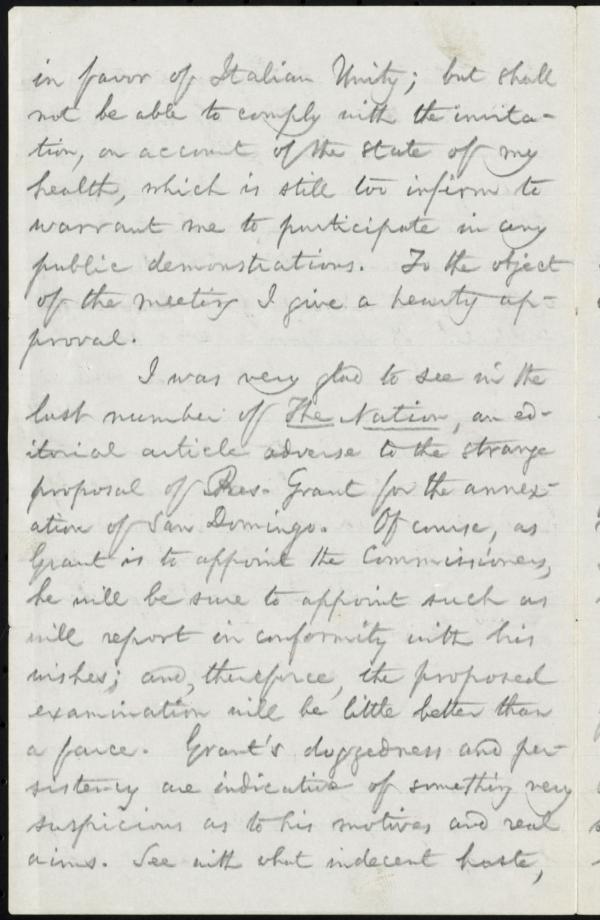 in favor of Italian Unity; but shall
not be able to comply with the invita-
tion, on account of the state of my
health, which is still too infirm to
warrant me to participate in any
public demonstrations. To the object
of the meeting I give a hearty ap-
proval.
I was very glad to see in the
last number of The Nation, an ed-
itorial article adverse to the strange
proposal of Pres. Grant for the annex-
ation of San Domingo. Of course, as
Grant is to appoint the Commissioners,
he will be sure to appoint such as
will report in conformity with his
wishes; and, therefore, the proposed
examination will be little better than
a farce. Grant's doggedness and per-
sistency are indicative of something very
suspicious as to his motives and real
aims. See with what indecent haste,